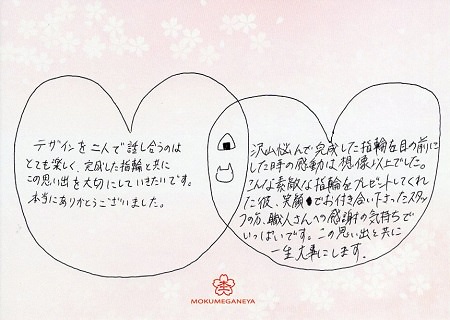 デザインを二人で話し合うのは
とても楽しく、完成した指輪と共に
この思い出を大切にしていきたいです。
本当にありがとうございました。
沢山悩んで完成した指輪を目の前に
した時の感動は想像以上でした。
こんな素敵な指輪をプレゼントしてくれ
た彼、笑顔でお付き合い下さったスタッ
フの方、職人さんへの感謝の気持ちで
いっぱいです。この思い出と共に
一生大事にします。
MOKUMEGANEYA